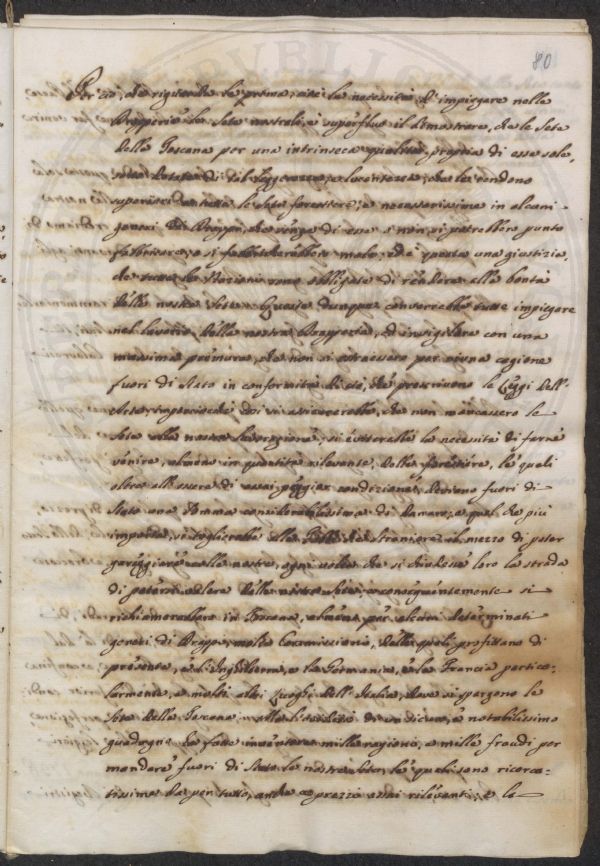 80
Per ciò, che riguarda la prima, cioè la necessità d'impiegare nelle
Drapperie la Seta nostrale, è superfluo il dimostrare, che le Sete
della Toscana per una intrinseca qualità propria di esse sole,
sono dotate di tal leggerezza, e lucentezza, che le rendono
superiori a tutte le Sete forestiere, e necessarissime in alcuni
generi di Drappi, che senza di esse o non si potrebbero punto
fabbricare, o si fabbricherebbero male; ed è questa una giustizia,
che tutte le Nazioni sono obbligate di rendere alla bontà
delle nostre Sete. Queste dunque converrebbe tutte impiegare
nel lavorio delle nostre Drapperie, ed invigilare con una
massima premura, che non si estraessero per niuna cagione
fuori di Stato in conformità di ciò, che prescrivono le Leggi dell'
Arte; imperciocchè così si assicurerebbe, che non mancassero le
Sete alle nostre lavorazioni, si eviterebbe la necessità di farne
venire, almeno in quantità rilevante, delle forestiere, le quali
oltre all'essere di assai peggior condizione, levano fuori di
Stato una somma considerabilissima di denaro, e quel che più
importa, si toglierebbe alle straniere il mezzo di poter
gareggiare colle nostre, ogni volta che si chiudesse loro la strada
di potersi valere delle nostre Sete, e conseguentemente si
richiamerebbero in Toscana, almeno per alcuni determinati
generi di Drappi, molte Commissioni, delle quali profittano di
presente, e l'Inghilterra, e la Germania, e la Francia partico-
larmente, e molti altri Luoghi dell'Italia, dove si spargono le
Sete della Toscana. il notabilissimo
guadagno ha fatto inventare mille ragioni, e mille fraudi per
mandare fuori di Stato le nostre Sete, le quali sono ricerca-
tissime da per tutto, anche a prezzi assai rilevanti; e le